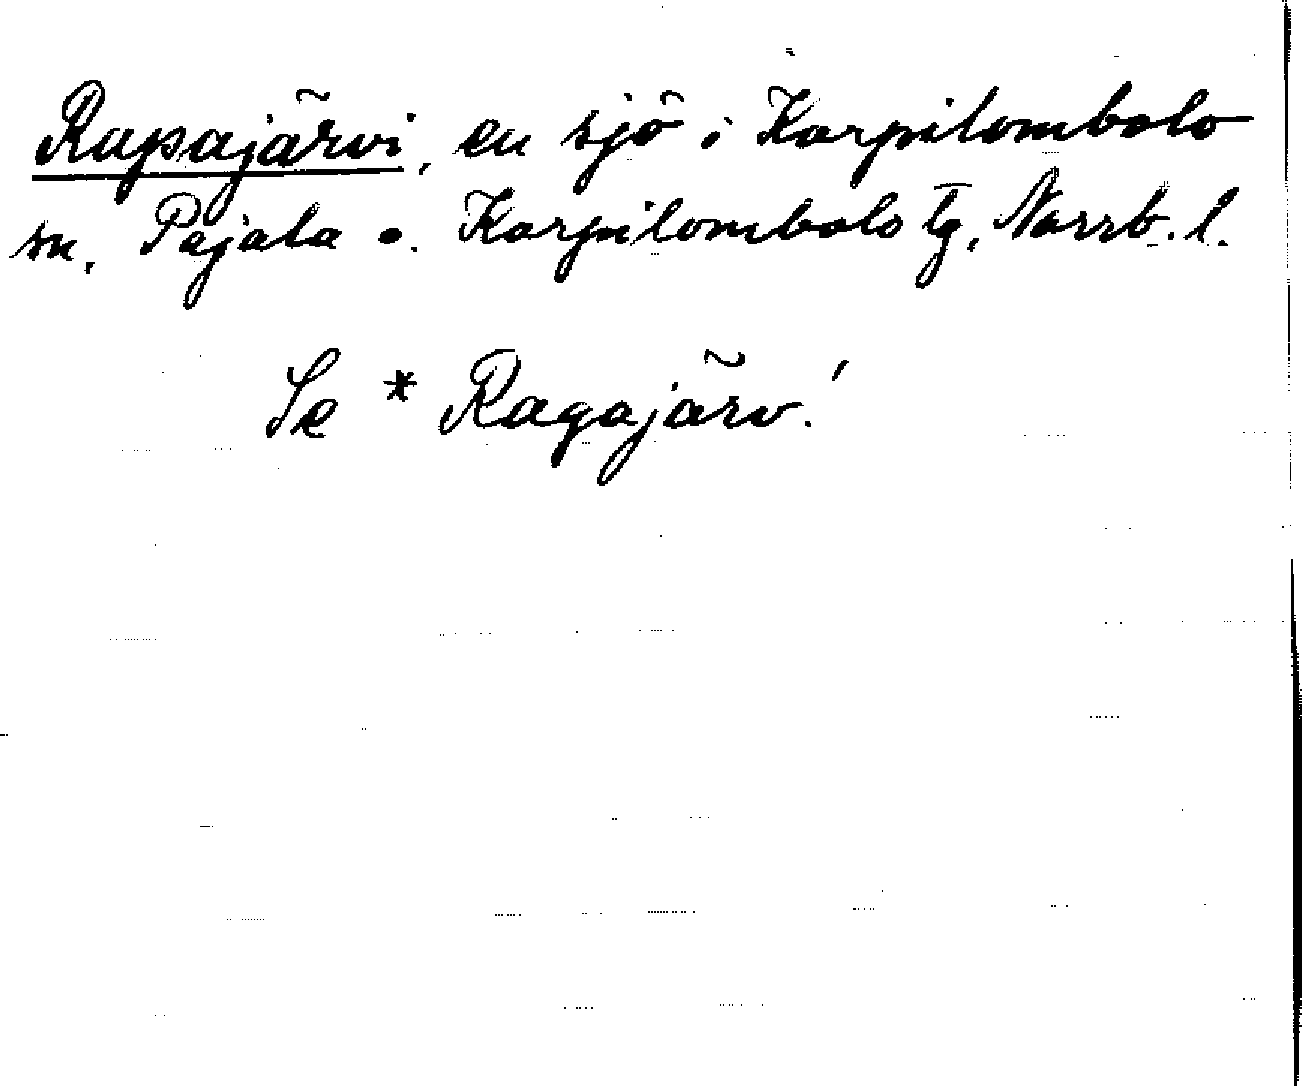 Rupajärvi, en sjö i Korpilombolo
sn, Pajala o. Korpilombolo tg, Norrb. l.
Se * Ragajärv!